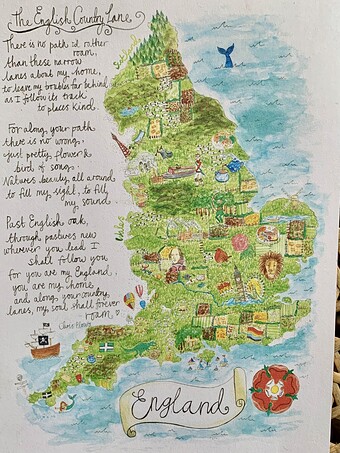 The English Country Lane
There is no path I'd rather
roam,
than these narrow
lanes about my home,
to leave my troubles far behind
as I follow its track
to places kind.
For along your path
there is no wrong,
just pretty flower &
bird of song.
Natures beauty all around
to fill my sight, to fill
my sound.
Past English oak,
through pastures new
wherever you lead I
shall follow you
for you are my England,
you are my home,
and along your country
lanes, my soul shall forever
roam.
England